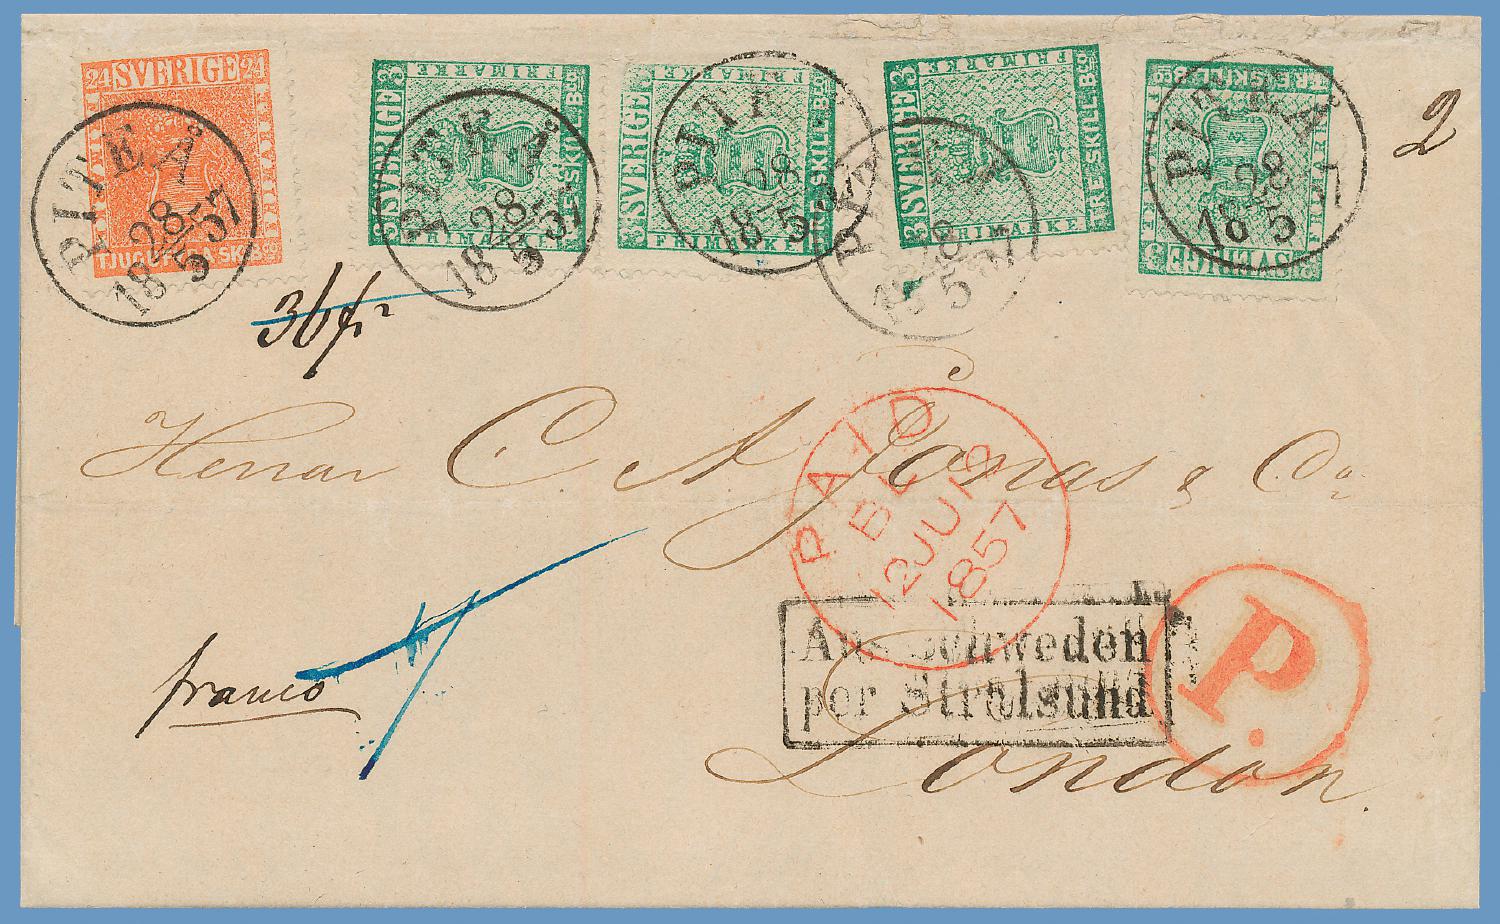 24 SVERIGE 24
FRIMÄRKE
TJUGUFYRA SK. Bco
PITEÅ
28
5
1857
3 SVERIGE 3
FRIMÄRKE
TRE SKILL. Bco
FRIMÄRKE
PITEÅ
28
5
1857
SVERIGE
FRIMÄRKE
TRE SKILL. Bco
FRIMÄRKE
PITEÅ
28
5
1857
3 SVERIGE 3
FRIMÄRKE
TRE SKILL. Bco
FRIMÄRKE
PITEÅ
28
5
1857
TRE SKILL. Bco
FRIMÄRKE
SVERIGE
PITEÅ
28
5
1857
2
36
Herrar C A Jonas & Co
PAID
BL
12 JU 12
1857
franco
Aus Schweden
per Stralsund
P.
London.